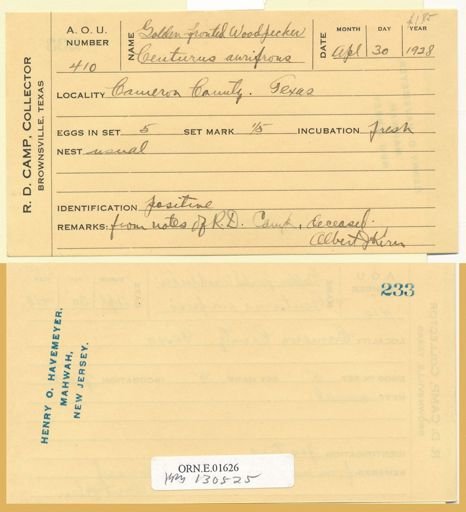 £185
A. O. U.
NUMBER
410
NAME
Golden fronted Woodpecker
Centurus aurifrons
DATE
MONTH DAY YEAR
Apl 30 1928
R. D. CAMP, COLLECTOR
BROWNSVILLE, TEXAS
LOCALITY Cameron County. Texas
EGGS IN SET 5 SET MARK 1/5 INCUBATION fresh
NEST usual
IDENTIFICATION positive
REMARKS: from notes of R.D. Camp, deceased.
Albert J Kirn
233
HENRY O. HAVEMEYER.
MAHWAH,
NEW JERSEY.
ORN.E.01626
130525